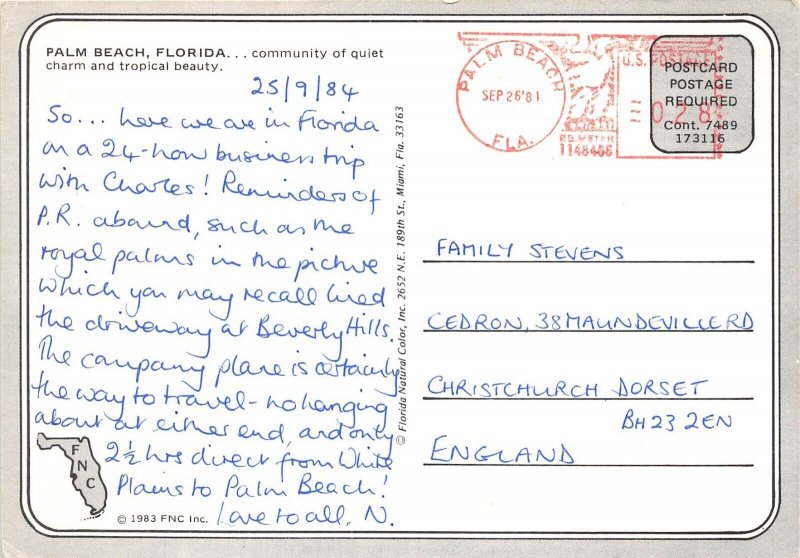 PALM BEACH, FLORIDA... community of quiet
charm and tropical beauty.
25/9/84
So... here we are in Florida
on a 24-hour business trip
with Charles! Reminders of
P.R. abound, such as the
royal palms in the picture
which you may recall lined
the driveway at Beverly Hills.
The company plane is certainly
the way to travel - no hanging
about at either end, and only
2½ hrs direct from White
Plains to Palm Beach!
Love to all, N.
FNC
© 1983 FNC Inc.
© Florida Natural Color, Inc. 2652 N.E. 189th St., Miami, Fla. 33163
PALM BEACH
SEP 26'81
FLA.
U.S. POSTAGE
PB METER
1148466
028
POSTCARD
POSTAGE
REQUIRED
Cont. 7489
173116
FAMILY STEVENS
CEDRON, 38 MAUNDEVILLE RD
CHRISTCHURCH DORSET
BH23 2EN
ENGLAND